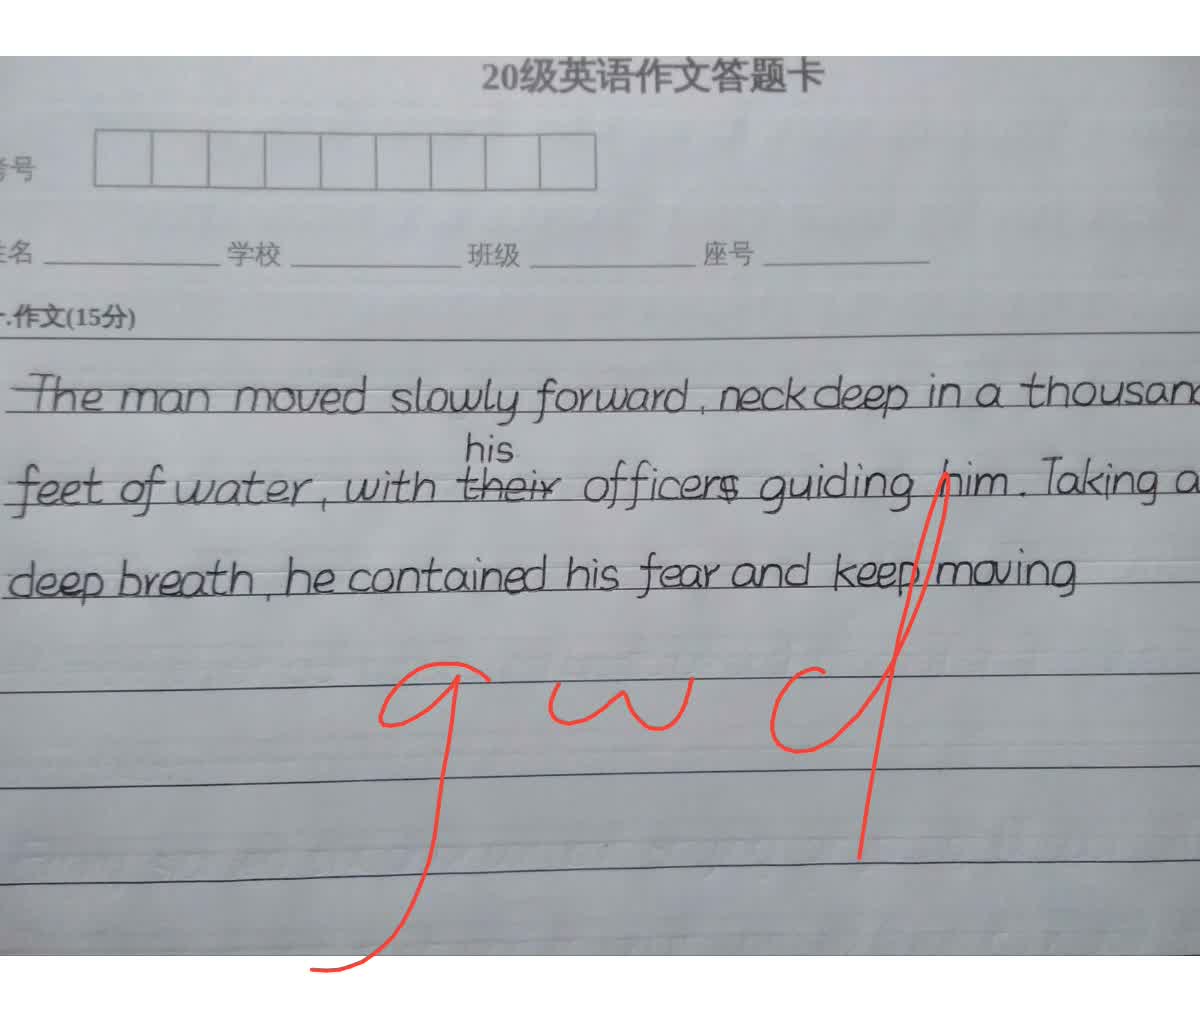 20级英语作文答题卡
考号
姓名 学校 班级 座号
一.作文(15分)
The man moved slowly forward, neck deep in a thousand
his
feet of water, with their officers guiding him. Taking a
deep breath, he contained his fear and keep moving
gwd